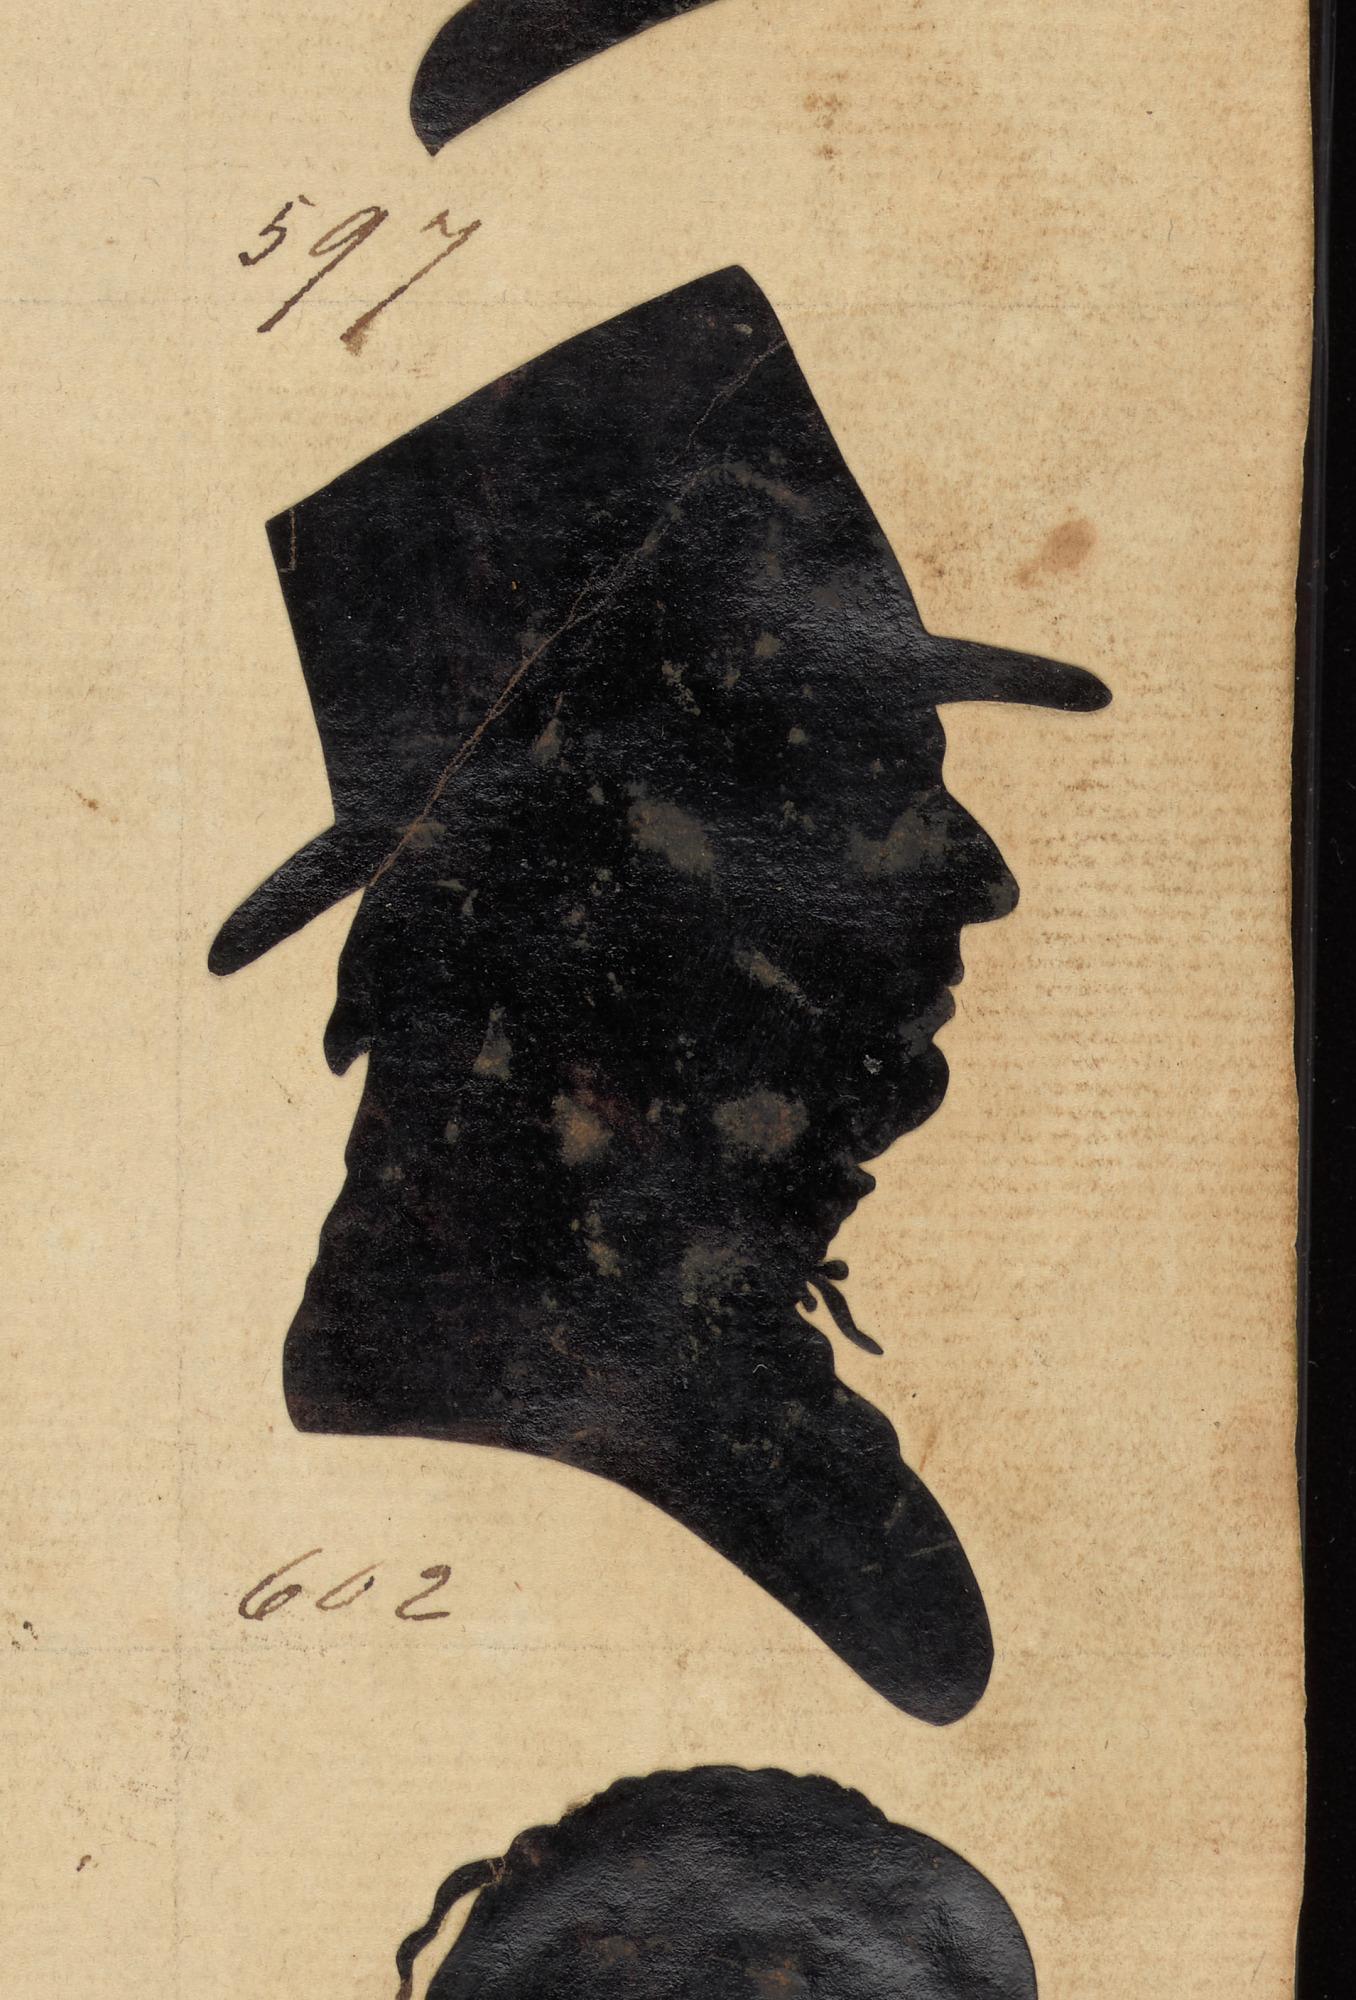 597
602